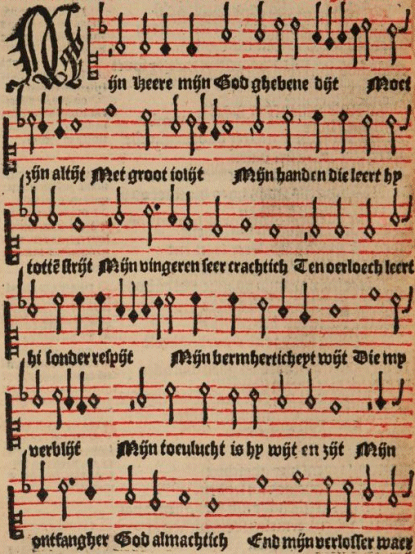 Mijn Heere mijn God ghebenedijt Moet
zijn altijt Met groot iolijt Mijn handen die leert hy
tottē strijt Mijn vingeren seer crachtich Ten oerloech leert
hi sonder respijt Mijn bermherticheyt wijt Die my
verblijt Mijn toeulucht is hy wijt en zijt Mijn
ontfangher God almachtich End mijn verlosser waer